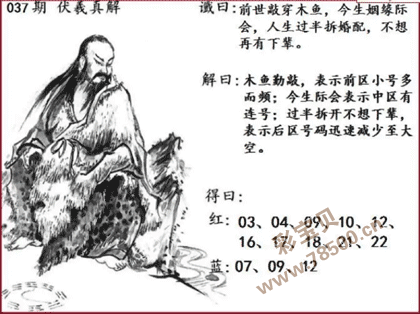 037期 伏羲真解
谶曰：前世敲穿木鱼，今生姻缘际
会，人生过半拆婚配，不想
再有下辈。
解曰：木鱼勤敲，表示前区小号多
而频；今生际会表示中区有
连号；过半拆开不想下辈，
表示后区号码迅速减少至大
空。
得曰：
红： 03、04、09、10、12、
16、17、18、21、22
蓝：07、09、12
彩宝贝
www.78500.cn